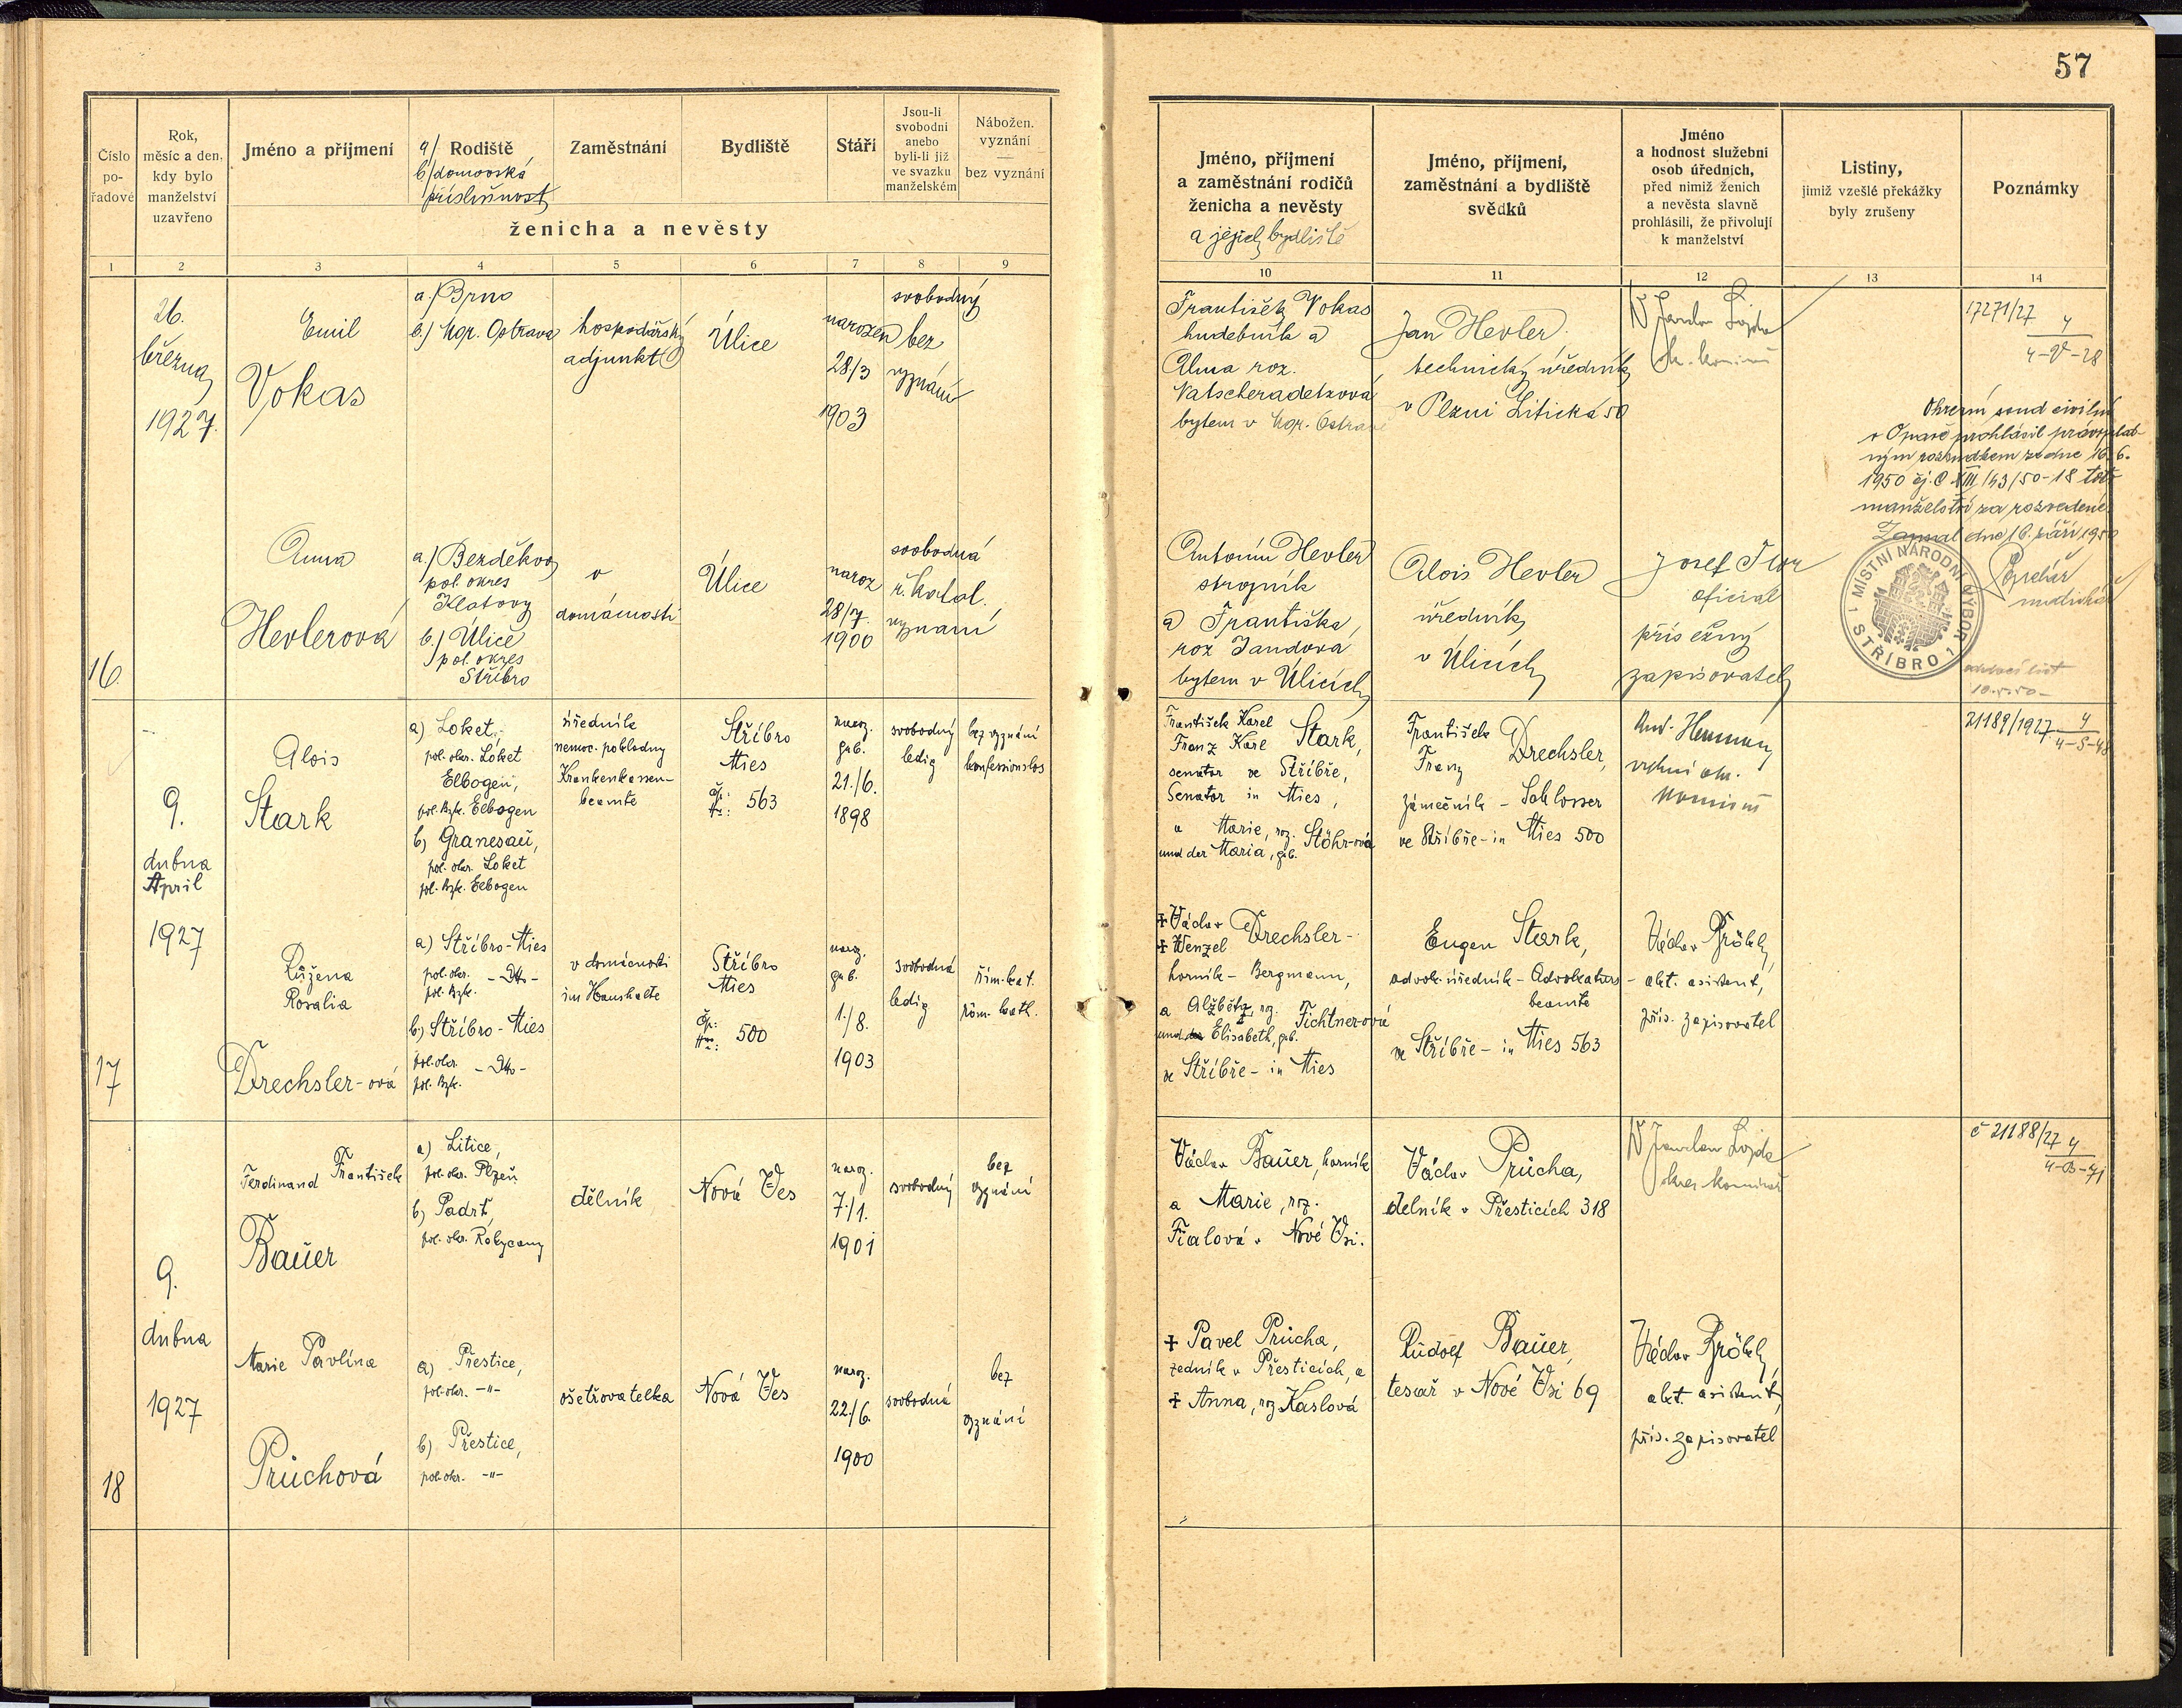 57
Číslo
po-
řadové
Rok,
měsíc a den,
kdy bylo
manželství
uzavřeno
Jméno a příjmení
a/ Rodiště
b/ domovská
příslušnost
Zaměstnání
Bydliště
Stáří
Jsou-li
svobodni
anebo
byli-li již
ve svazku
manželském
Nábožen.
vyznání
—
bez vyznání
ženicha a nevěsty
Jméno, příjmení
a zaměstnání rodičů
ženicha a nevěsty
a jejich bydliště
Jméno, příjmení,
zaměstnání a bydliště
svědků
Jméno
a hodnost služební
osob úředních,
před nimiž ženich
a nevěsta slavně
prohlásili, že přivolují
k manželství
Listiny,
jimiž vzešlé překážky
byly zrušeny
Poznámky
1 2 3 4 5 6 7 8 9
10 11 12 13 14
16.
26.
března
1927.
Emil
Vokas
a./ Brno
b./ Mor. Ostrava
hospodářský
adjunkt
Úlice
narozen
28/3
1903
svobodný
bez
vyznání
František Vokas
hudebník a
Alma roz.
bytem v Mor. Ostravě
Jan Hevler,
technický úředník
v Plzni Litická 50
17271/27 4
4-V-28
Okresní soud civilní
v Opavě prohlásil právoplat-
ným rozsudkem ze dne 16.6.
1950 čj. C XIII 143/50-18 toto
manželství za rozvedené.
Zapsal dne 16. září 1950
MÍSTNÍ NÁRODNÍ VÝBOR
STŘÍBRO 1
Anna
Hevlerová
a./ Bezděkov
pol. okres
Klatovy
b./ Úlice
pol. okres
Stříbro
v
domácnosti
Úlice
naroz
28/7.
1900
svobodná
ř. katol.
vyznání
Antonín Hevler
strojník
a Františka,
roz Jandova
bytem v Úlicích
Alois Hevler
úředník
v Úlicích
Josef
oficial
přísežný
zapisovatel
17
9.
dubna
April
1927
Alois
Stark
a) Loket,
pol. okr. Loket
Elbogen,
pol. Bzk. Elbogen
b) Granesau,
pol. okr. Loket
pol. Bzk. Elbogen
úředník
nemoc. pokladny
Krankenkassen-
beamte
Stříbro
Mies
čp.:
Nr.: 563
naroz.
geb.
21./6.
1898
svobodný
ledig
bez vyznání
konfessionslos
František Karel
Franz Karl Stark,
senátor ve Stříbře,
Senator in Mies,
a Marie, roz. Stöhr-ová
und der Maria, geb.
František
Franz Drechsler,
zámečník - Schlosser
ve Stříbře - in Mies 500
vrchní okr.
21189/1927 4
4-S-48
Růžena
Rosalia
Drechsler-ová
a) Stříbro-Mies
pol. okr.
pol. Bzk. - Dto -
b) Stříbro-Mies
pol. okr.
pol. Bzk. - Dto -
v domácnosti
im Haushalte
Stříbro
Mies
Čp.:
Nr.: 500
naroz.
geb.
1./8.
1903
svobodná
ledig
řím.-kat.
röm.-kath.
+ Václav
+ Wenzel Drechsler -
horník - Bergmann,
a Alžběty, roz. Fichtner-ová
und Elisabeth, geb.
ve Stříbře - in Mies
Eugen Stark,
advok. úředník - Advokaturs-
beamte
ve Stříbře - in Mies 563
Václav
akt. asistent,
přís. zapisovatel
18
9.
dubna
1927
Ferdinand František
Bauer
a) Litice,
pol. okr. Plzeň
b) Padrť,
pol. okr. Rokycany
dělník
Nová Ves
naroz.
7./1.
1901
svobodný
bez
vyznání
Václav Bauer, horník
a Marie, roz.
Fialová v Nové Vsi.
Václav Průcha,
dělník v Přesticích 318
č 21188/27 4
4-B-71
Marie Pavlína
Průchová
a) Přestice,
pol. okr. -"-
b) Přestice,
pol. okr. -"-
ošetřovatelka
Nová Ves
naroz.
22./6.
1900
svobodná
bez
vyznání
+ Pavel Průcha,
zedník v Přesticích, a
+ Anna, roz Kaslová
Rudolf Bauer,
tesař v Nové Vsi 69
Václav
akt. asistent,
přís. zapisovatel